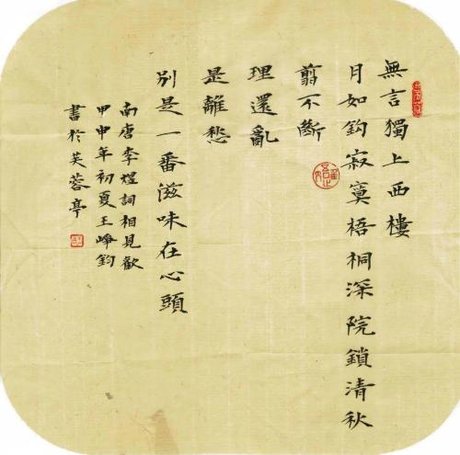 無言獨上西樓
月如鈎寂寞梧桐深院鎖清秋
翦不斷
理還亂
是離愁
別是一番滋味在心頭
南唐李煜詞相見歡
甲申年初夏王崢鈞
書於芙蓉亭